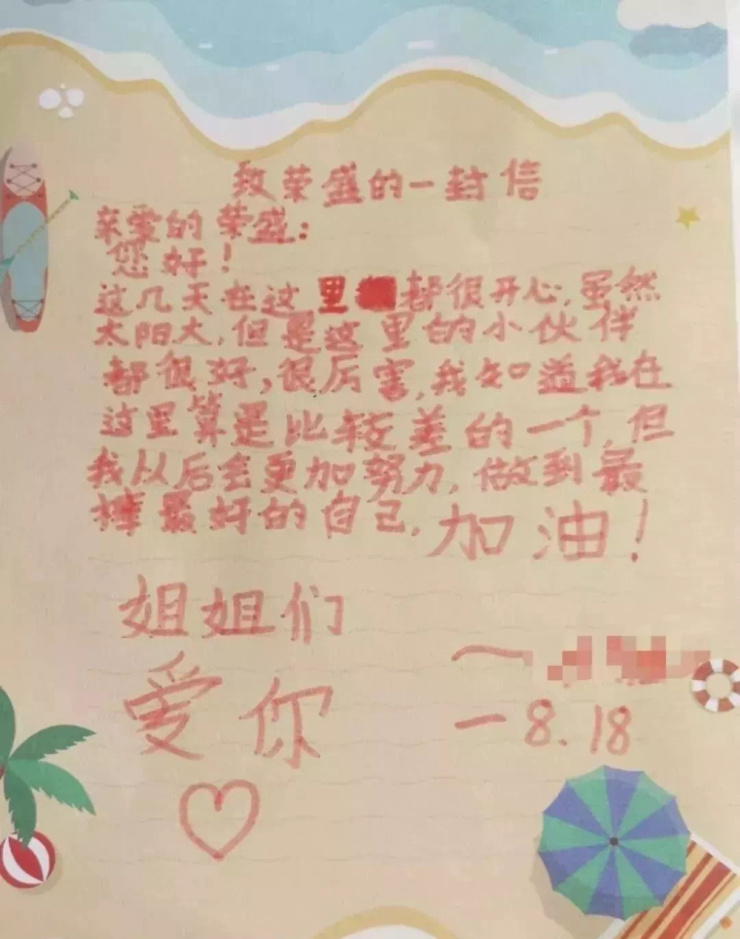 致荣盛的一封信
亲爱的荣盛：
您好！
这几天在这里都很开心，虽然
太阳大，但是这里的小伙伴
都很好，很厉害，我知道我在
这里算是比较差的一个，但
我以后会更加努力，做到最
棒最好的自己，加油！
姐姐们
爱你
一8.18